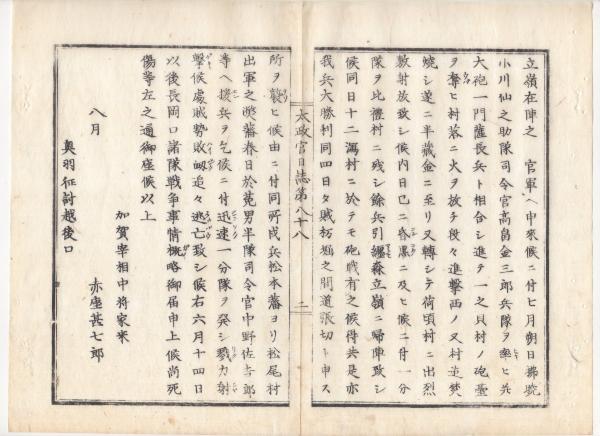 立嶺在陣之　官軍へ申來候ニ付七月朔日拂曉
小川仙之助隊司令官高畠金三郎兵隊ヲ率ヒ共
大砲一門薩長兵ト相合シ進テ一之貝村ノ砲臺
ヲ奪ヒ村落ニ火ヲ放チ段々進擊西ノ又村迄焚
燒シ遂ニ半藏金ニ至リ又轉シテ荷頃村ニ出烈
敷射放致シ候内日已ニ昏黒ニ及ヒ候ニ付一分
隊ヲ比禮村ニ殘シ餘兵引纏森立嶺ニ歸陣致シ
候同日十二潟村ニ於テモ砲戰有之候得共是亦
我兵大勝利同四日夕賊杤堀之間道張切ト申ス
太政官日誌第八十八
二
所ヲ襲ヒ候由ニ付同所戍兵松本藩ヨリ松尾村
出軍之弊藩春日於菟男半隊司令官中野佐与郎
等ヘ援兵ヲ乞候ニ付迅速一分隊ヲ發シ戮力射
擊候處賊勢敗衂追々逃亡致シ候右六月十四日
以後長岡口諸隊戰爭事情概略御屆申上候尚死
傷等左之通御座候以上
加賀宰相中將家来
八月　赤座甚七郎
奥羽征討越後口